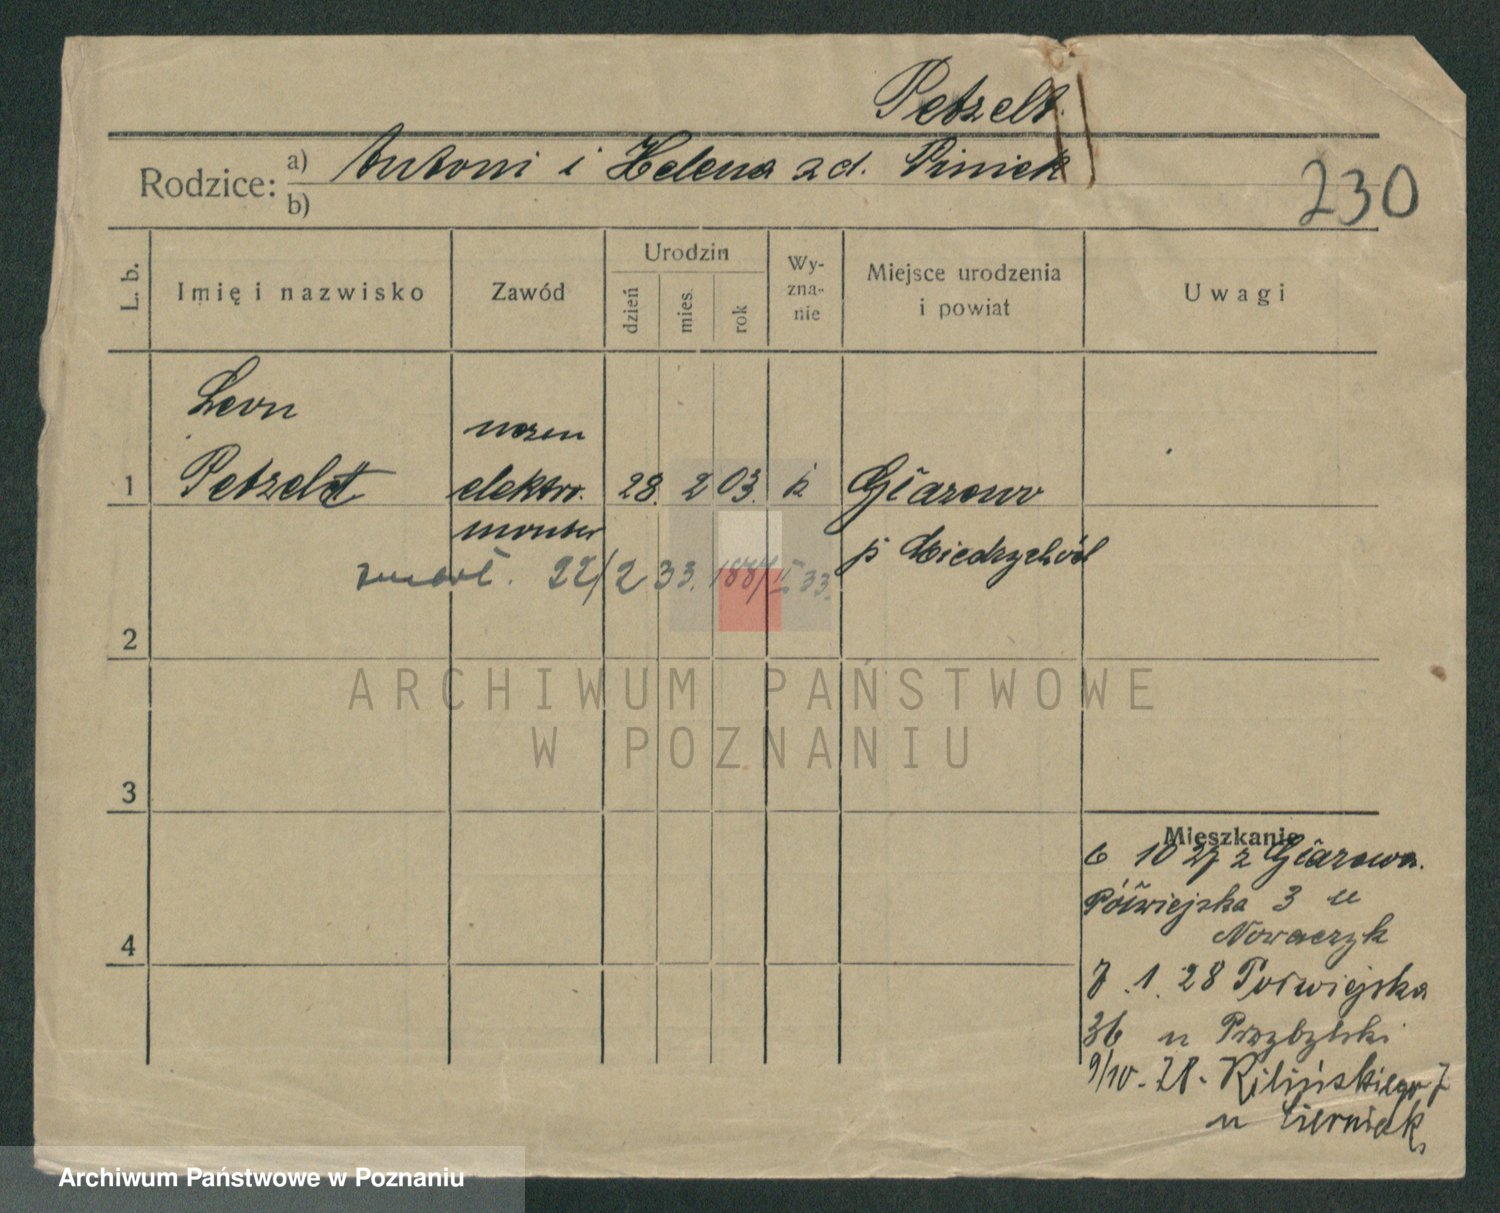 Petzelt.
Rodzice: a) Antoni i Helena z d. Piniek
b)
230
L. b.
Imię i nazwisko
Zawód
Urodzin
dzień
mies.
rok
Wy-
zna-
nie
Miejsce urodzenia
i powiat
Uwagi
Leon
Petzelt
elektro.
monter
1
28. 2 03. k
p. Międzychód
zmarł. 22/2 33. II 33.
2
3
4
ARCHIWUM PAŃSTWOWE
W POZNANIU
Mieszkanie
6 10 27 z
Półwiejska 3 u
Nowaczyk
7.1.28 Półwiejska
36 u Przybylski
9/10. 28. Kilińskiego 7
u Cierniak
Archiwum Państwowe w Poznaniu